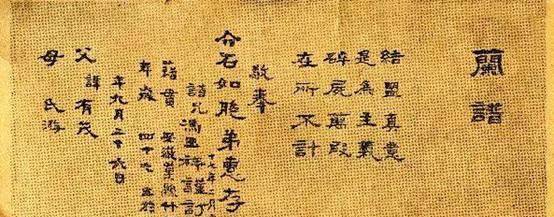 蘭譜
結盟真意
是為主義
碎屍萬段
在所不計
敬奉
介石如胞弟惠存
十七年二月
譜兄馮玉祥謹訂
籍貫 安徽巢縣竹
年歲 四十七 生於
年九月二十六日
父 諱有茂
母 氏游